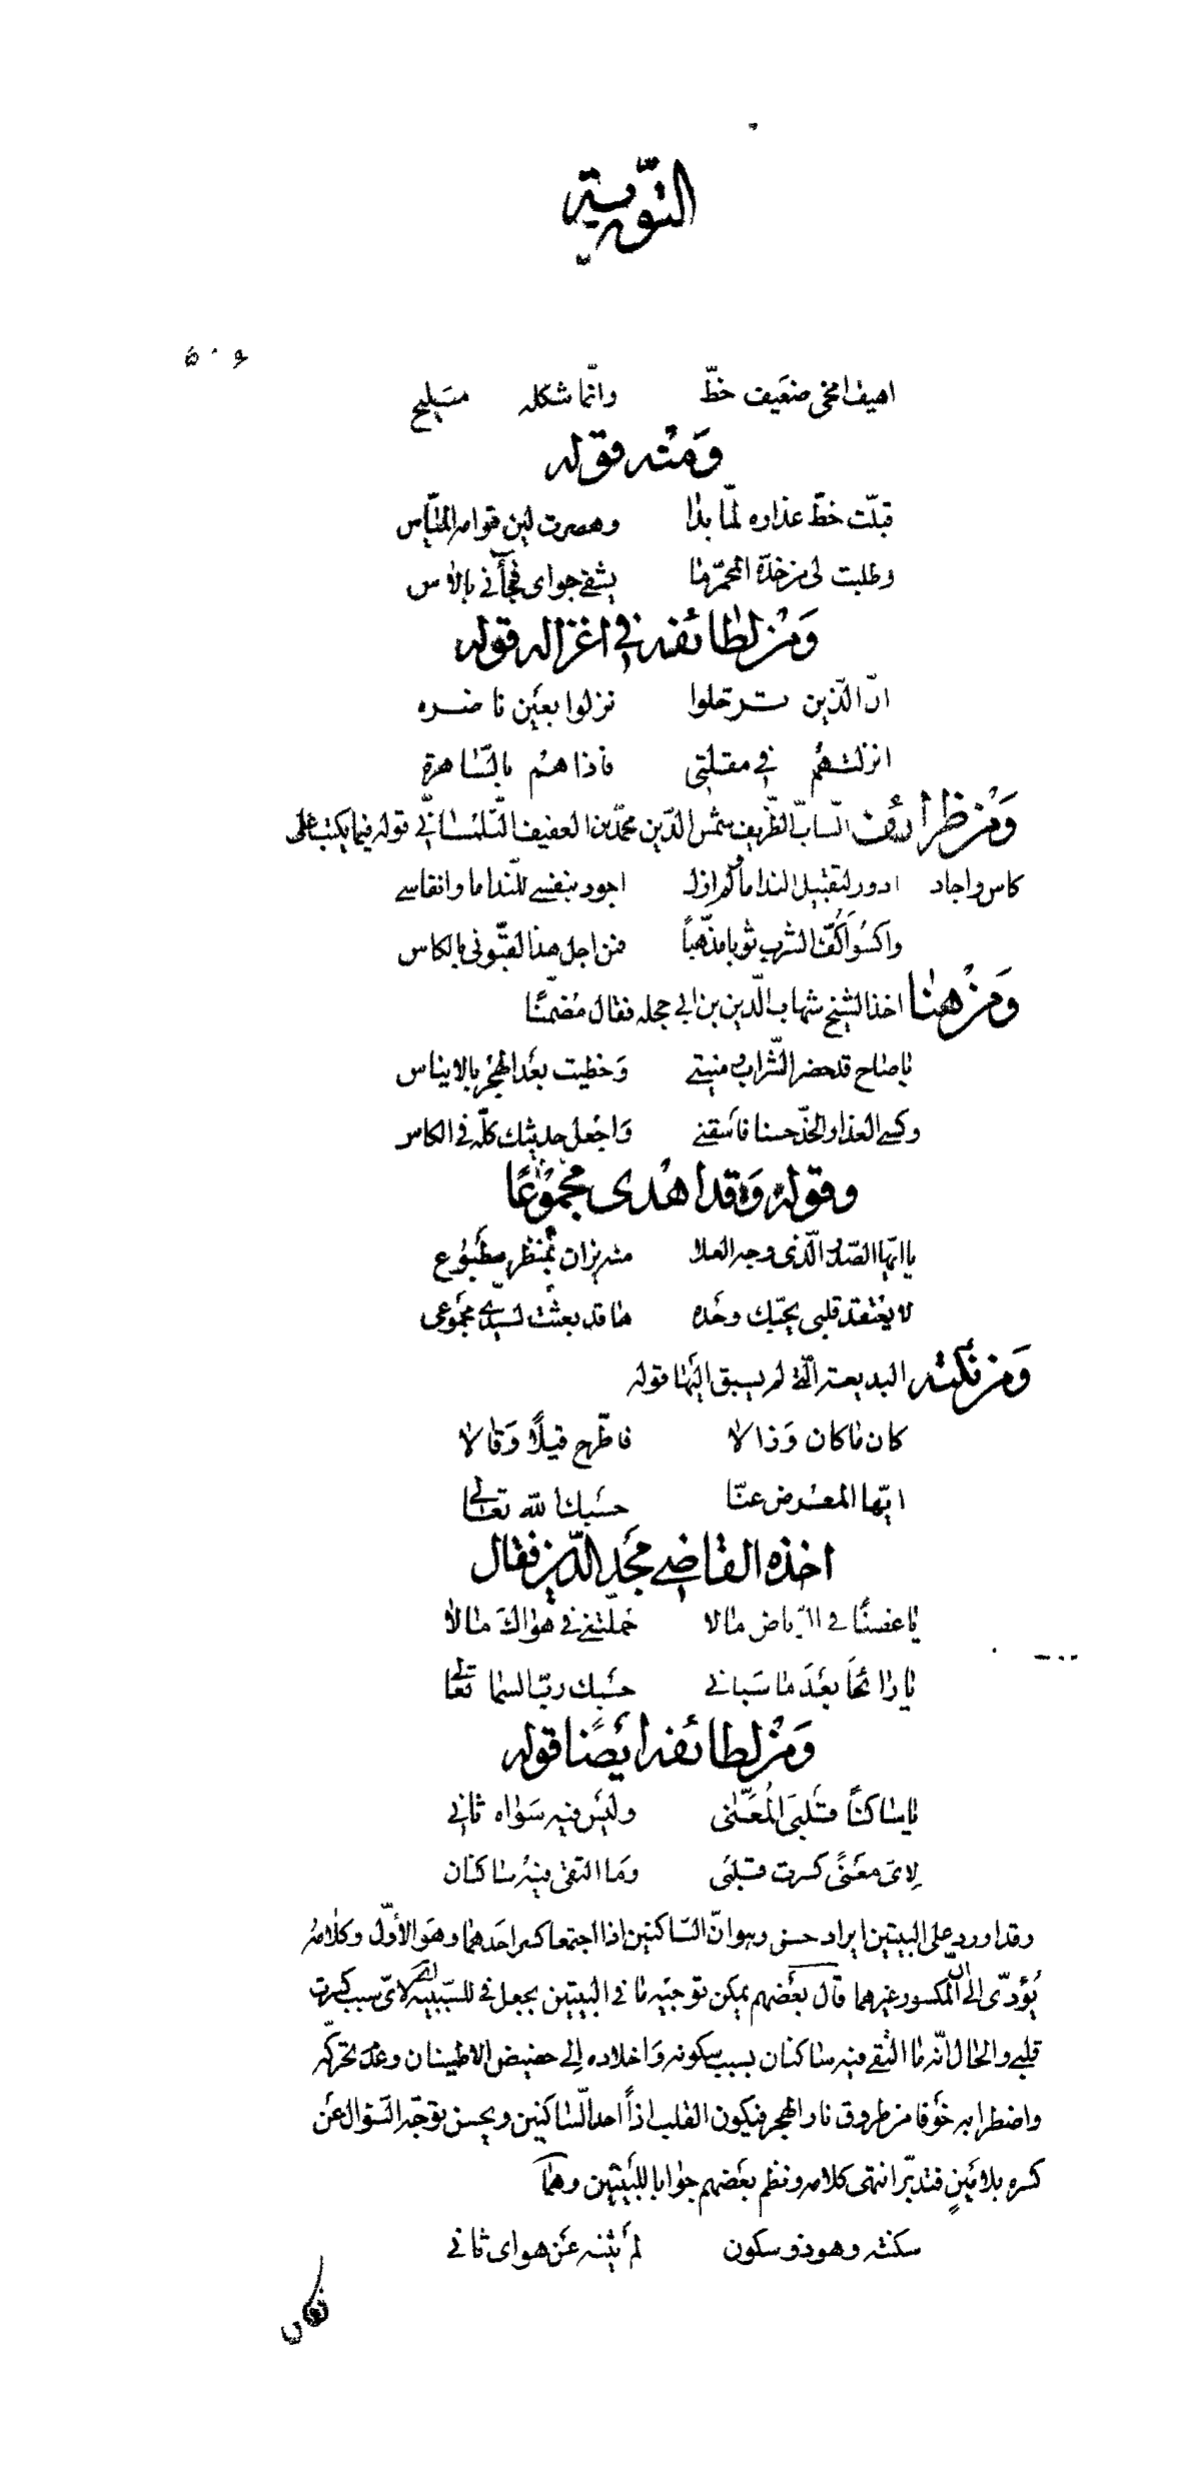 التورية
٥٠٦
اهيف امخى ضعيف خطّ وانّما شكله مليح
وَمنه قوله
قبلّت خطّ عذاره لمّا بدا وهصرت لين قوامه الميّاس
وطلبت لى من خدّه المحمرّ ما يشفى جواى فجاءنى بالاس
وَمن لطائفه فى اغزاله قوله
انّ الذّين ترحّلوا نزلوا بعين ناضره
انزلتهم فى مقلتى فاذا هم بالسّاهرة
وَمن ظرائف الشابّ الظّريف شمس الدّين محمّد بن العفيف التّلمسانّى قوله فيما يكتب على
كاس واجاد ادور لتقبيل النداما ولم ازل اجود بنفسى للنّداما وانفاسى
واكسُو اَكُفّ الشرب ثوبا مذّهباً فمن اجل هذا لقبّونى بالكاس
وَمن هنا اخذ الشيخ شهاب الدّين بن ابى حجله فقال مُضمّنًا
يا صاح قد حضر الشّراب ومنيتى وَحظيت بعَد الهجْر بالايناس
وكسى العذار الخدّ حسنا فاسَقنى وَاجْعل حديثك كلّه فى الكاس
وقوله وَقد اهْدى مجْموُعًا
يا ايّها الصّدر الّذى وجه العلا منه يزان بمنظر مطبُوع
لا يعْتقد قلبى بحبّك وحَده ها قد بعثت لسيّدى مجمُوعى
وَمن نكته البديعة الّتى لم يسبق اليَها قوله
كان ما كان وَزالا فاطّرح قيلًا وَقالا
ايّها المعْرض عنّا حسَبك الله تعالى
اخذه القاضى مجَد الدّين فقال
يا غصنًا فى الرّياض مالا حَملّتنى فى هواك مَالا
يا رائحَا بعَد ما سَبانى حسَبك ربّ السما تعالى
وَمنْ لطائفه ايَضًا قوله
يا ساكنًا قلبىَ المُعَنّى وليَس فيه سَواه ثانى
لاىّ معَنًى كسرت قلبى وَما التقى فيهْ ساكنان
وقد اورد على البيتين ايراد حسن وهو انّ السّاكنين اذا اجتمعا كسر احَدهما وهو الأوّل وكلامهُ
يُؤدّى الى انّ المكسور غيرهما قال بعَضهم يمكن توجيَه ما فى البيتين بجعل فى للسّببيه اى لاىّ سبب كسرت
قلبى والحال انّه ما التقى فيه ساكنان بسبب سكونه وَاخلاده الِى حضيض الاطمينان وعدَم تحرّكه
واضطرابه خوَفا من طروق نار الهجر فيكون القلب اذاً احد السّاكنين ويحسن توجّه السّؤال عَن
كسره بلا مَينٍ فتدبّر انتهى كلامه ونظم بعَضهم جوابا للبيَتين وهُما
سكنته وهو ذو سكون لم يَثنه عَن هواى ثانى
فكان